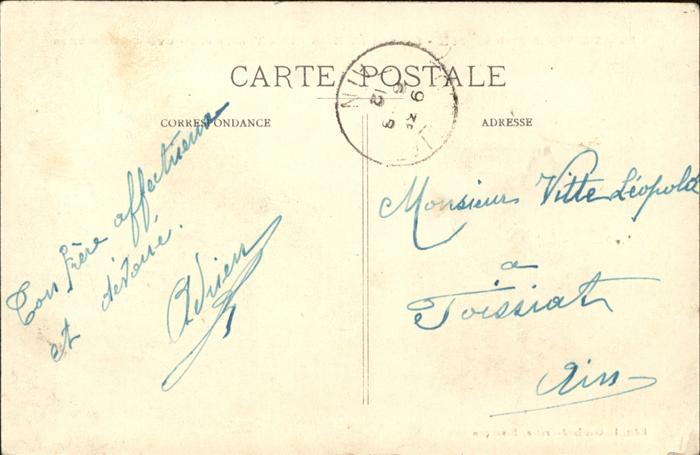 CARTE POSTALE
CORRESPONDANCE
ADRESSE
Ton frère affectueux
et dévoué.
Adrien
Monsieur Vitte Léopold
a
Toissiat
Ain